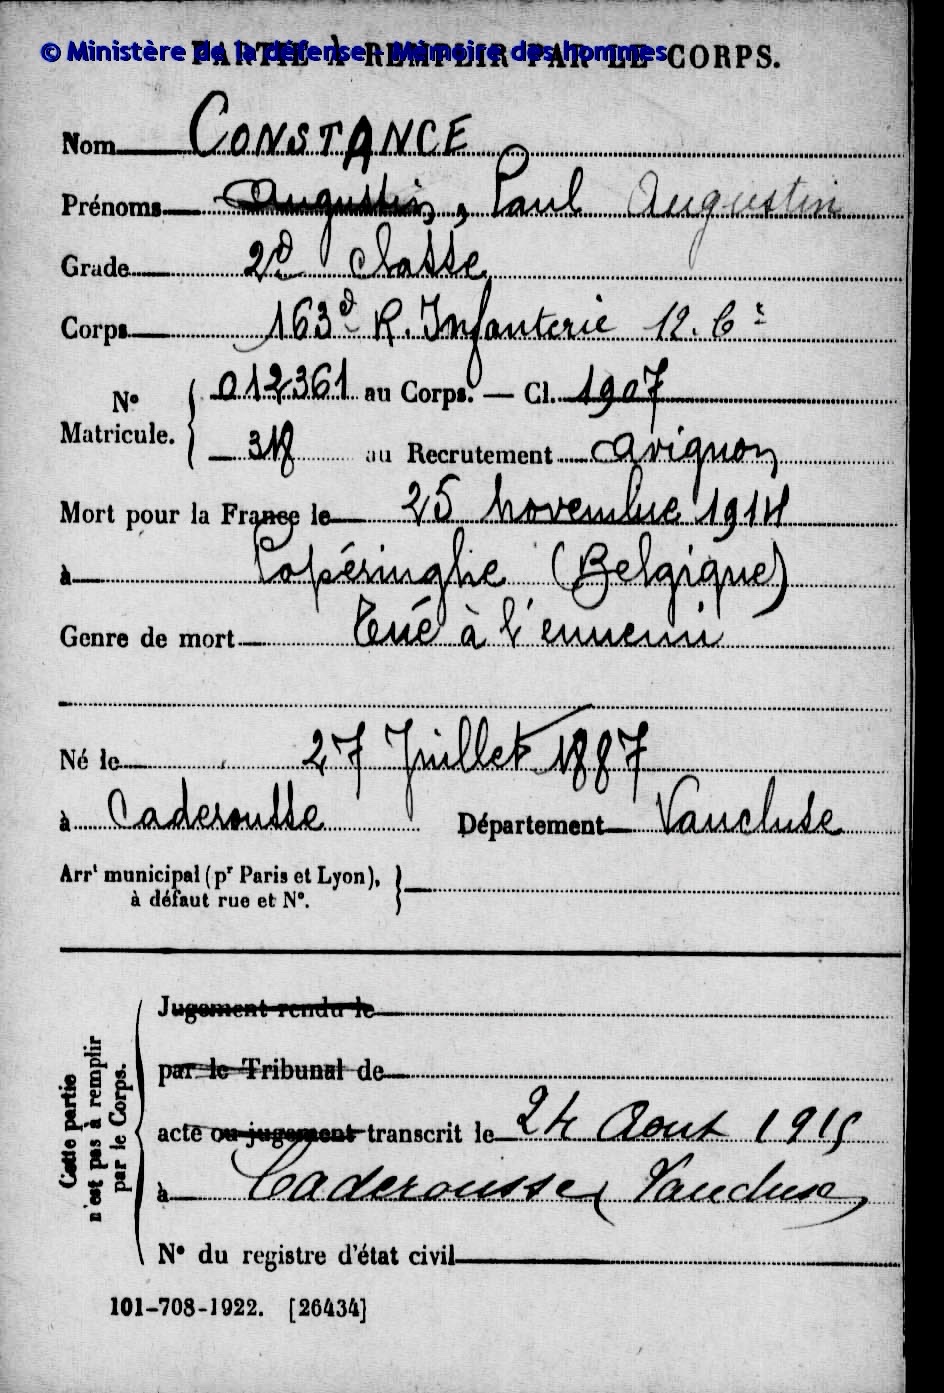 © Ministère de la défense - Mémoire des hommes
PARTIE À REMPLIR PAR LE CORPS.
Nom CONSTANCE
Prénoms Augustin, Paul Augustin
Grade 2e classe
Corps 163e R. Infanterie 12. Cie
N° Matricule. { 012361 au Corps. — Cl. 1907
318 au Recrutement Avignon
Mort pour la France le 25 Novembre 1914
à Popéringhe (Belgique)
Genre de mort Tué à l'ennemi
Né le 27 Juillet 1887
à Caderousse Département Vaucluse
Arrt municipal (pr Paris et Lyon),
à défaut rue et N°.
Cette partie
n'est pas à remplir
par le Corps.
Jugement rendu le
par le Tribunal de
acte ou jugement transcrit le 24 Aout 1915
à Caderousse (Vaucluse)
N° du registre d'état civil
101-708-1922. [26434]